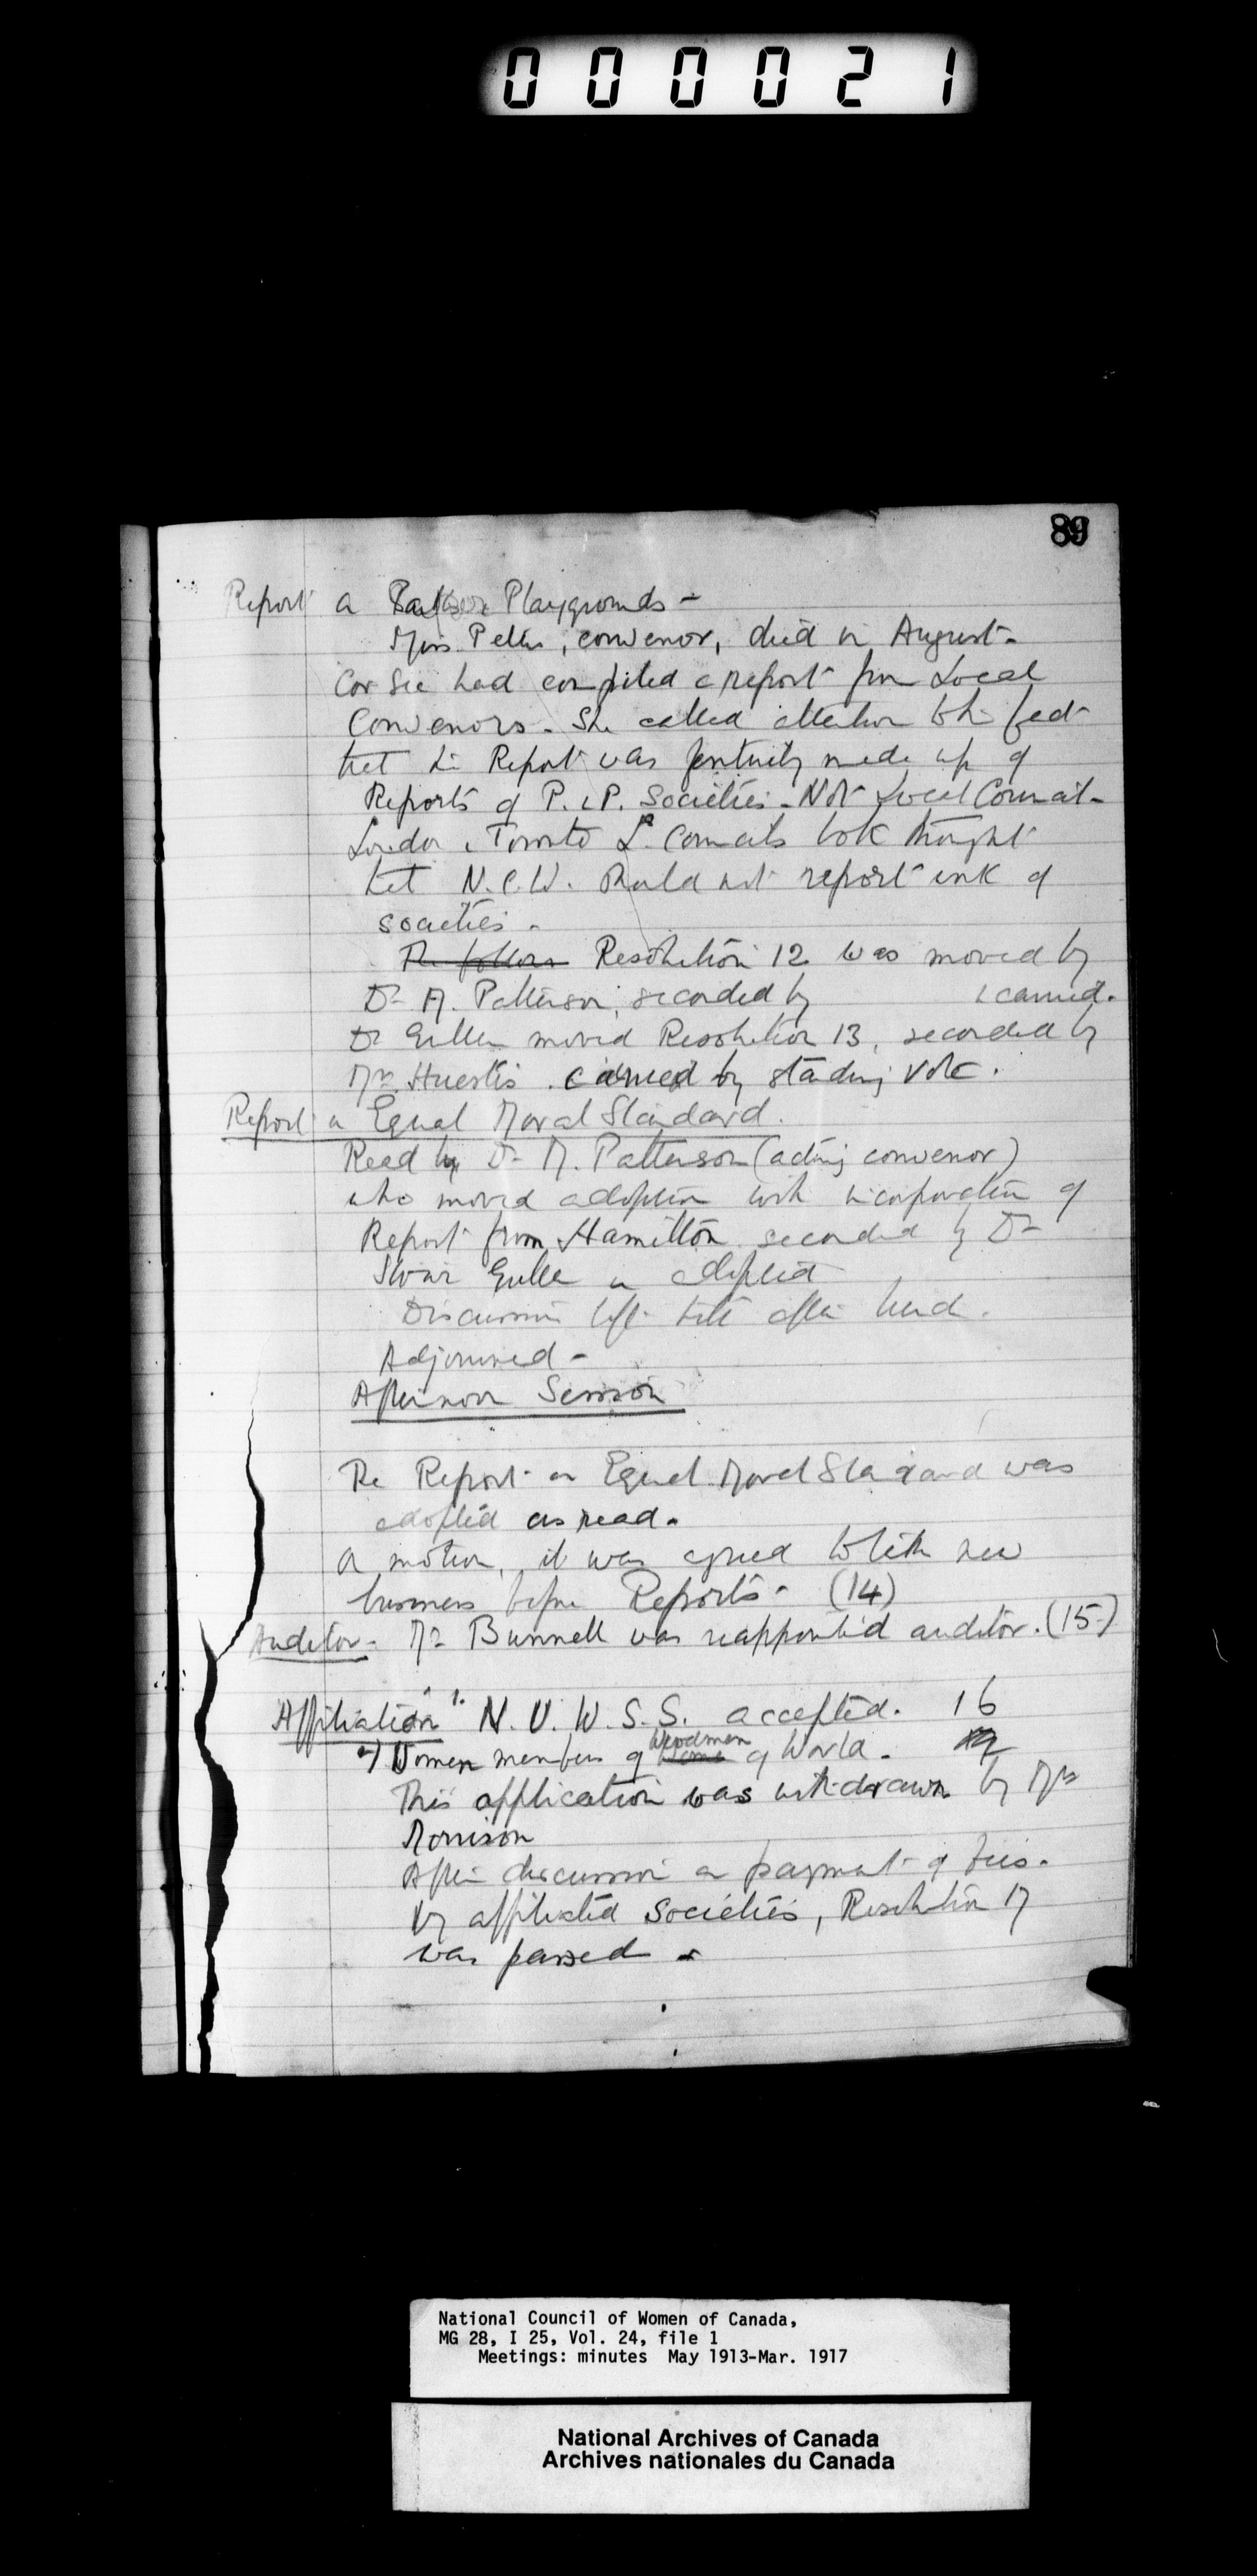 000021
89
Report on Parks & Playgrounds -
Miss Peters, convenor, died in August -
Cor Sec had compiled a report from Local
Convenors - She called attention to the fact
that the Report was made up of
Reports of P. & P. Societies - Not Local Council -
London & Toronto L. Councils both thought
that N.C.W. should not report work of
societies -
The follow Resolution 12 was moved by
Dr M. Patterson, seconded by & carried.
Dr Gullen moved Resolution 13, seconded by
Mrs Huestis . carried by standing vote.
Report on Equal Moral Standard.
Read by Dr M. Patterson (acting convenor)
who moved adoption with incorporation of
Report from Hamilton seconded by Dr
Stowe Gullen adopted
Discussion left till after lunch.
Adjourned -
Afternoon Session
The Report on Equal Moral Standard was
adopted as read.
On motion, it was agreed to take new
business before Reports - (14)
Auditor - Mr Bunnell was reappointed auditor. (15)
Affiliation 1. N. U. W. S. S. accepted. 16
2) Women members of Woodmen of World.
This application was withdrawn by Mrs
Morrison
After discussion on payment of fees.
by affiliated Societies, Resolution 17
was passed -
National Council of Women of Canada,
MG 28, I 25, Vol. 24, file 1
Meetings: minutes May 1913-Mar. 1917
National Archives of Canada
Archives nationales du Canada